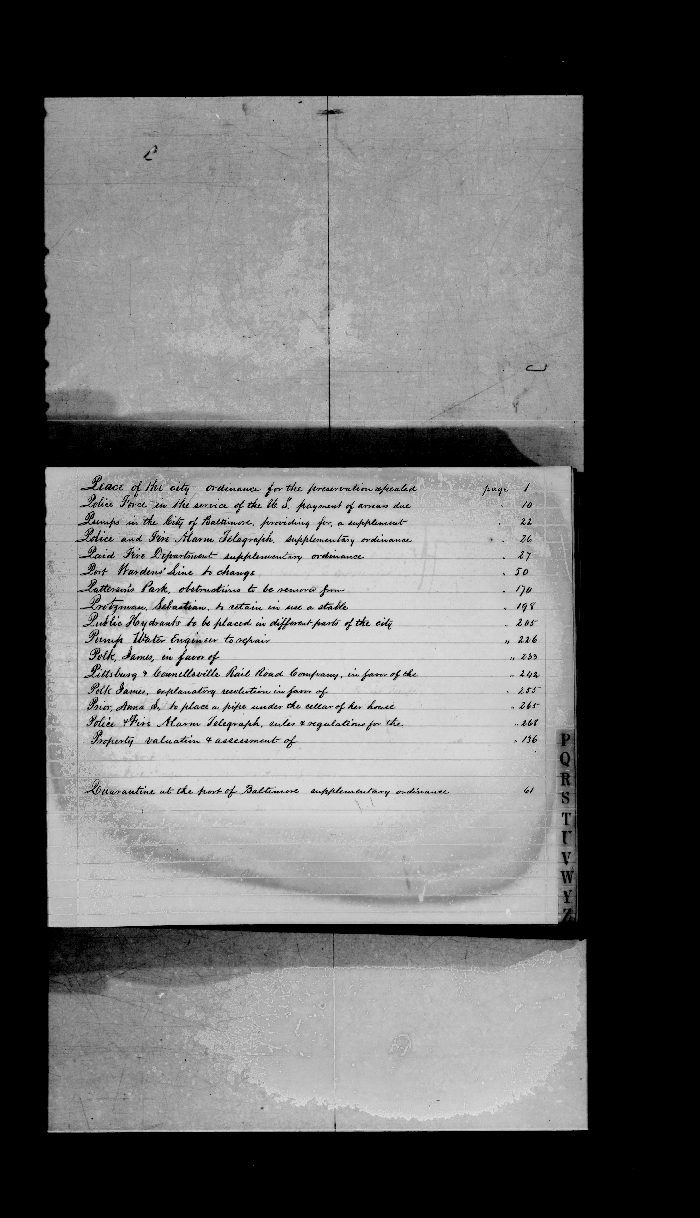 Peace of the city ordinance for the preservation repealed page 1
Police Force in the service of the U.S. payment of arears due " 10
Pumps in the City of Baltimore, providing for, a supplement " 22
Police and Fire Alarm Telegraph, supplementary ordinance " 26
Paid Fire Department supplementary ordinance " 27
Port Wardens' Line to change " 50
Patterson's Park, obstructions to be remov from " 170
Protzman, Sebastian, to retain in use a stable " 198
Public Hydrants to be placed in different parts of the city " 205
Pump Water Engineer to repair " 226
Polk, James, in favor of " 233
Pittsburg & Connellsville Rail Road Company, in favor of the " 242
Polk James, explanatory resolution in favor of " 255
Prior, Anna S. to place a pipe under the cellar of her house " 265
Police & Fire Alarm Telegraph, rules & regulations for the " 268
Property valuation & assessment of " 136
Quarantine at the port of Baltimore supplementary ordinance 61
P
Q
R
S
T
U
V
W
Y
Z